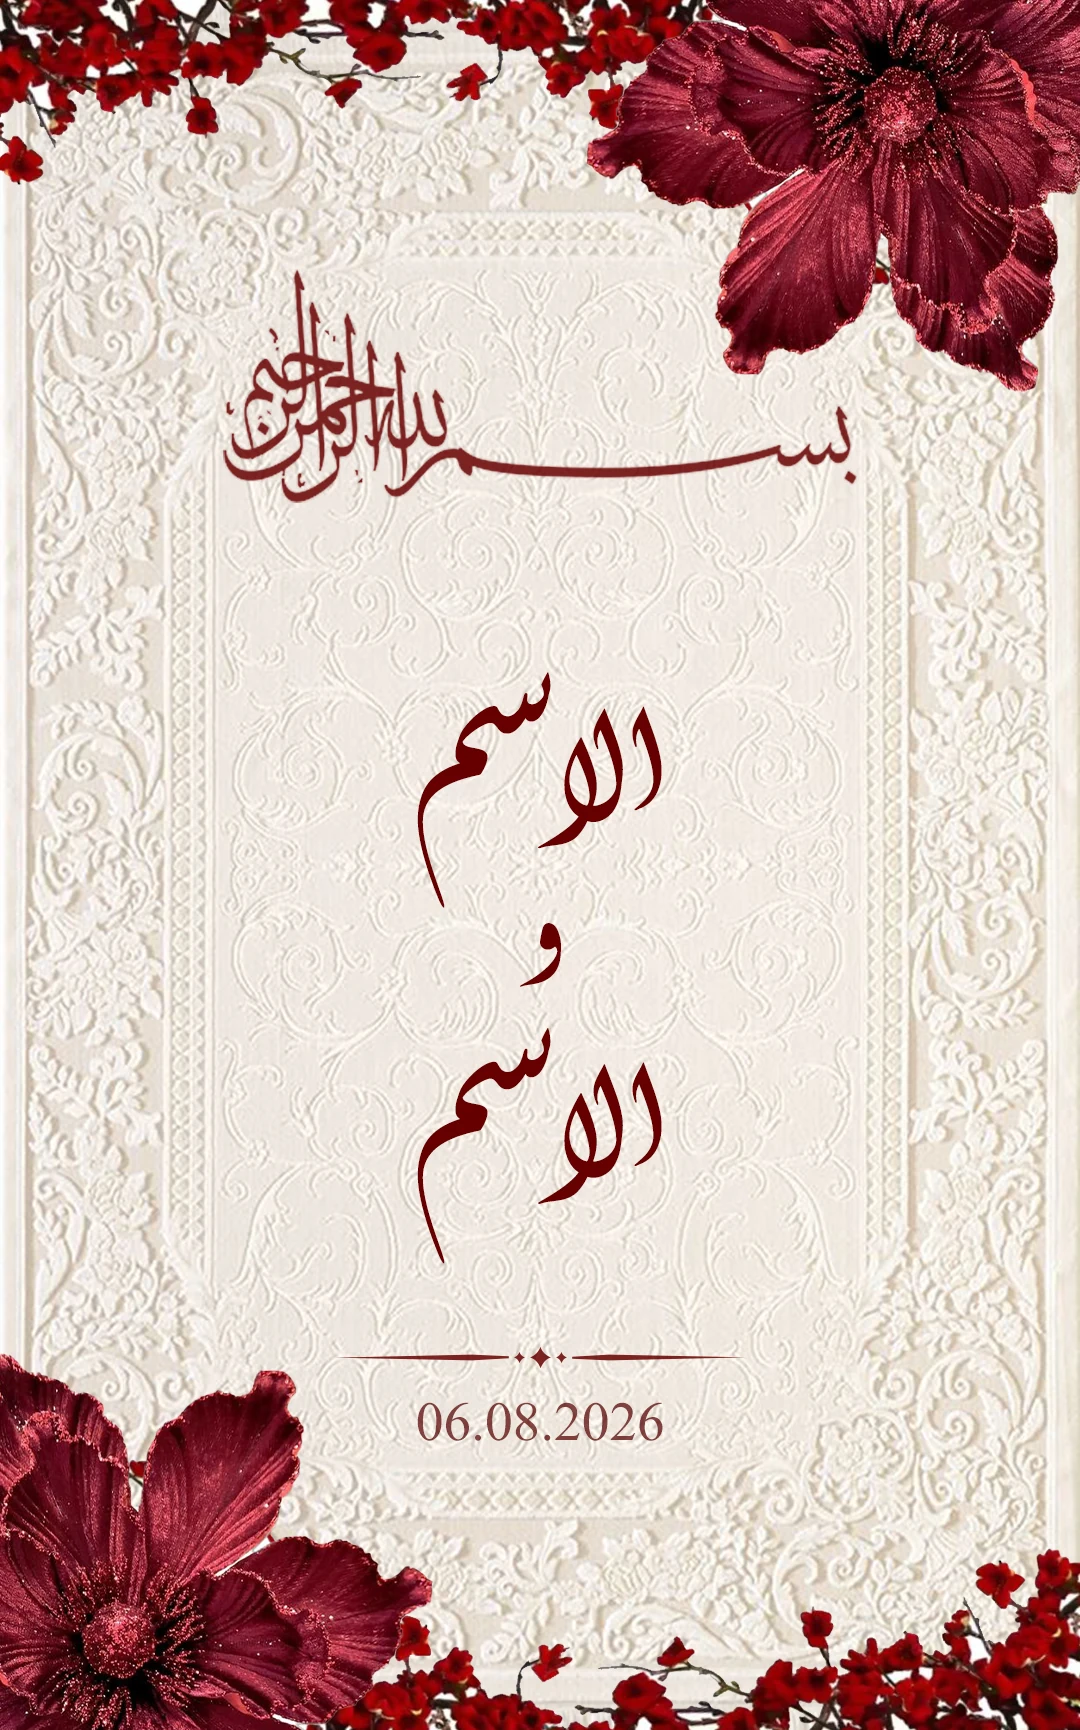 بسم الله الرحمن الرحيم
الاسم
و
الاسم
06.08.2026